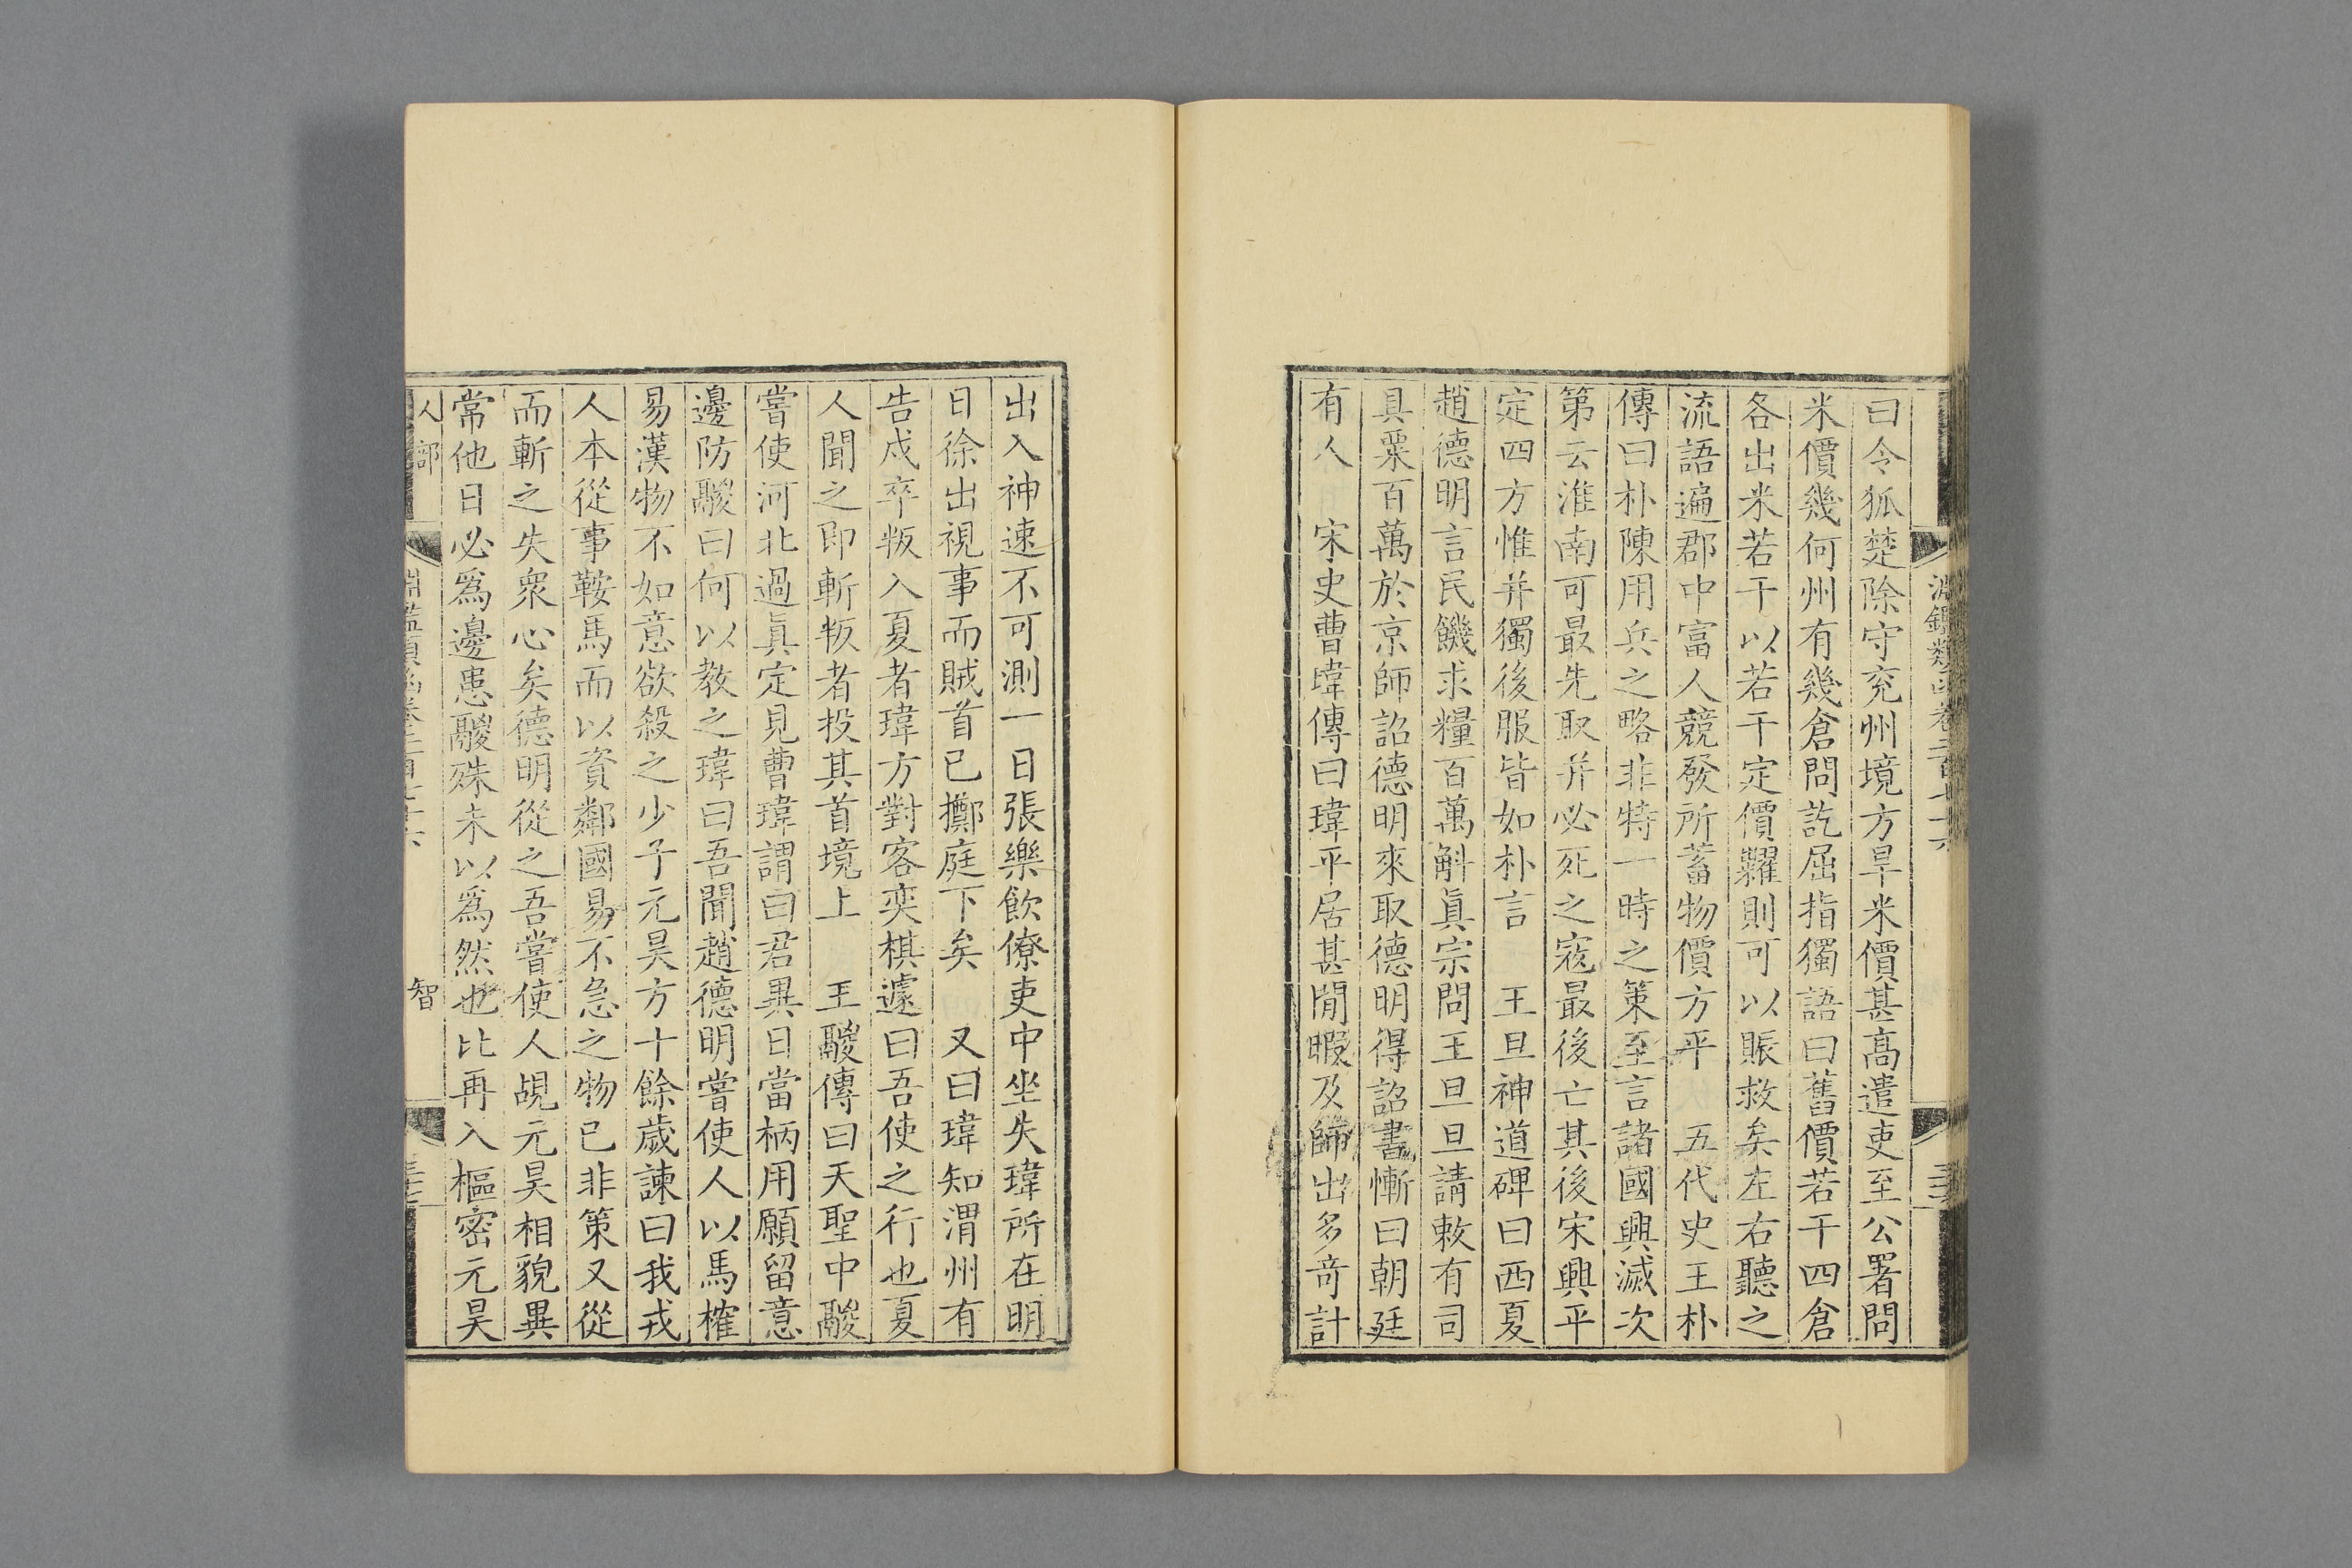 曰令狐楚除守兖州境方旱米價甚高遣吏至公署問
米價幾何州有幾倉問訖屈指獨語曰舊價若干四倉
各出米若干以若干定價糶則可以賑救矣左右聽之
流語遍郡中富人競發所蓄物價方平　五代史王朴
傳曰朴陳用兵之略非特一時之策至言諸國興滅次
第云淮南可最先取并必死之寇最後亡其後宋興平
定四方惟并獨後服皆如朴言　王旦神道碑曰西夏
趙德明言民饑求糧百萬斛眞宗問王旦旦請敕有司
具粟百萬於京師詔德明來取德明得詔書慚曰朝廷
有人　宋史曹瑋傳曰瑋平居甚閒暇及師出多奇計
出入神速不可測一日張樂飲僚吏中坐失瑋所在明
日徐出視事而賊首已擲庭下矣　又曰瑋知渭州有
告戍卒叛入夏者瑋方對客奕棋遽曰吾使之行也夏
人聞之即斬叛者投其首境上　王鬷傳曰天聖中鬷
嘗使河北過眞定見曹瑋謂曰君異日當柄用願留意
邊防鬷曰何以教之瑋曰吾聞趙德明嘗使人以馬榷
易漢物不如意欲殺之少子元昊方十餘歲諫曰我戎
人本從事鞍馬而以資鄰國易不急之物已非策又從
而斬之失衆心矣德明從之吾嘗使人覘元昊相貌異
常他日必爲邊患鬷殊未以爲然也比再入樞密元昊
人部　淵鑑類函卷二百七十六　智